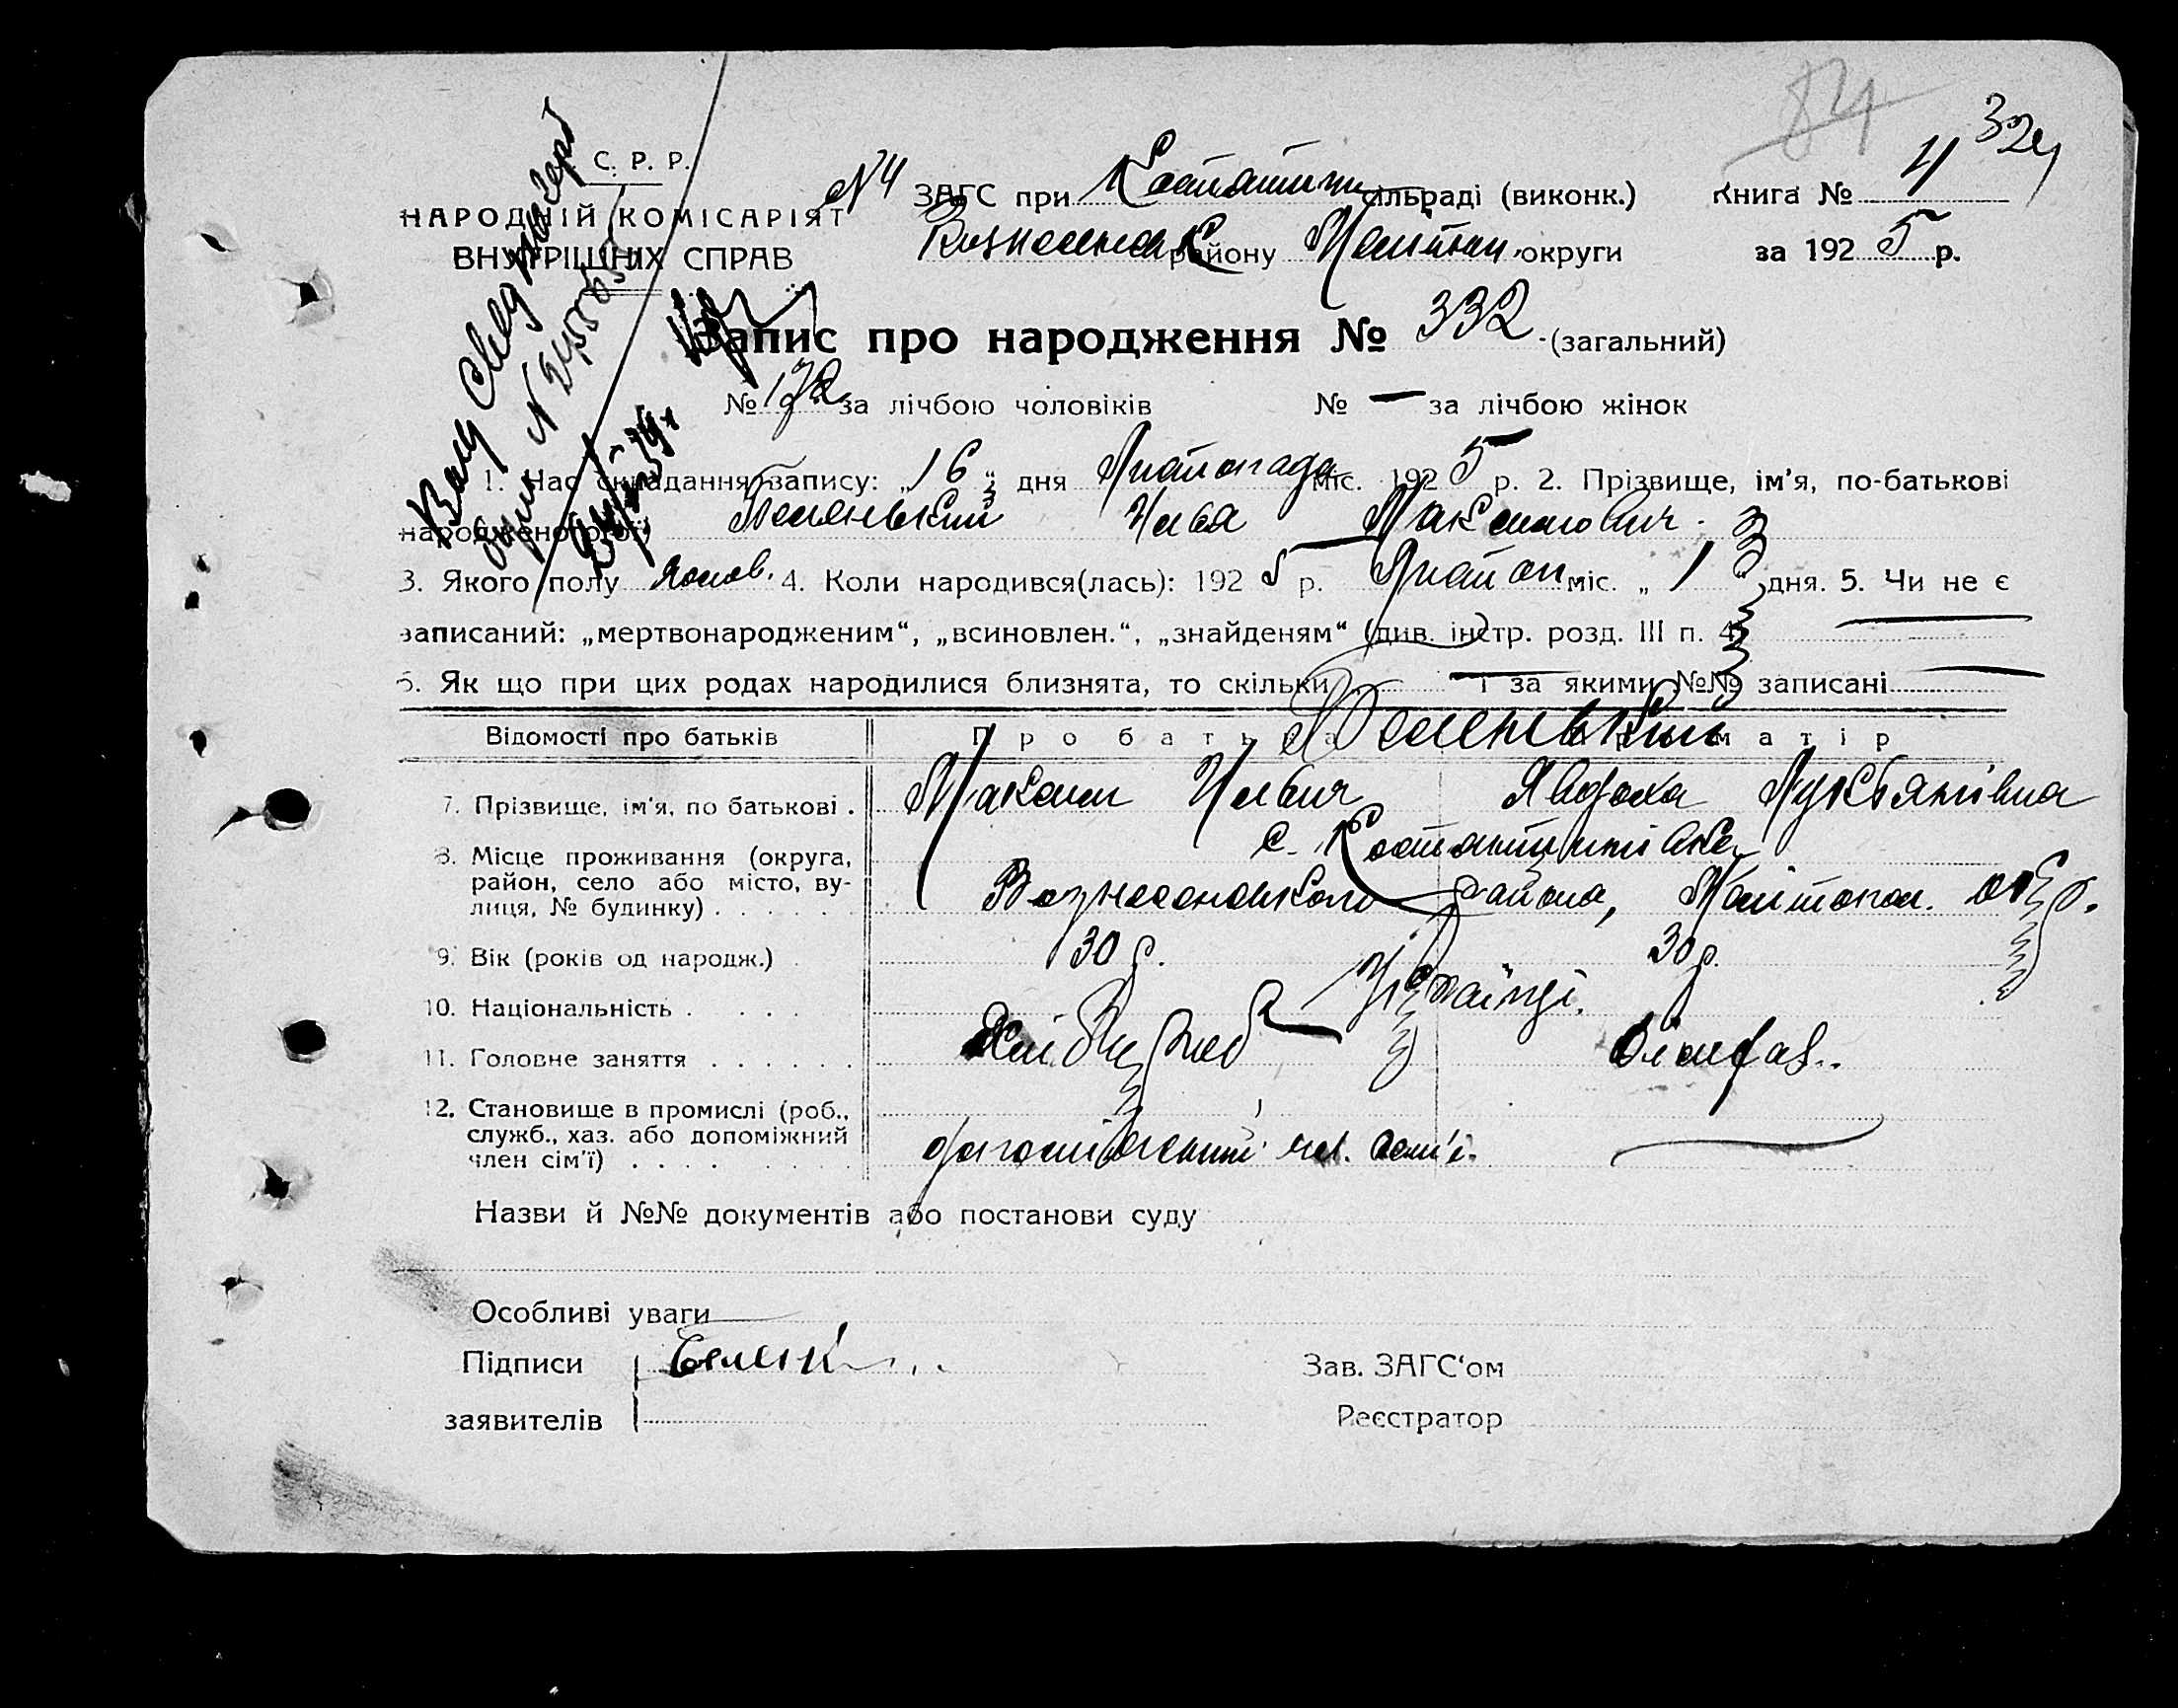 84
324
С. Р. Р.
НАРОДНІЙ КОМІСАРІЯТ
ВНУТРІШНІХ СПРАВ
№4 ЗАГС при сільраді (виконк.) Книга № 4
району округи за 1925 р.
Запис про народження № 332 (загальний)
№ 172 за лічбою чоловіків № — за лічбою жінок
1. Час складання запису: „16„ дня Листопада міс. 1925 р. 2. Прізвище, ім'я, по-батькові
народженого(ої) Илья Максимович
3. Якого полу 4. Коли народився(лась): 1925 р. Листоп міс. „1„ дня. 5. Чи не є
записаний: „мертвонародженим“, „всиновлен.“, „знайденям“ (див. інстр. розд. III п. 4)
6. Як що при цих родах народилися близнята, то скільки — і за якими №№ записані —
Відомості про батьків Про батька Про матір
7. Прізвище, ім'я, по батькові . Максим Ильич Явдоха Лукьянівна
8. Місце проживання (округа, район, село або місто, вулиця, № будинку) с. Костянтинівка
Вознесенського району, Меітопол. окр.
9. Вік (років од народж.) 30 р. 30 р.
10. Національність Українці.
11. Головне заняття Хлібороб
12. Становище в промислі (роб., служб., хаз. або допоміжний член сім'ї) чл. сем'ї
Назви й №№ документів або постанови суду
Особливі уваги
Підписи
заявителів
Зав. ЗАГС‘ом
Реєстратор